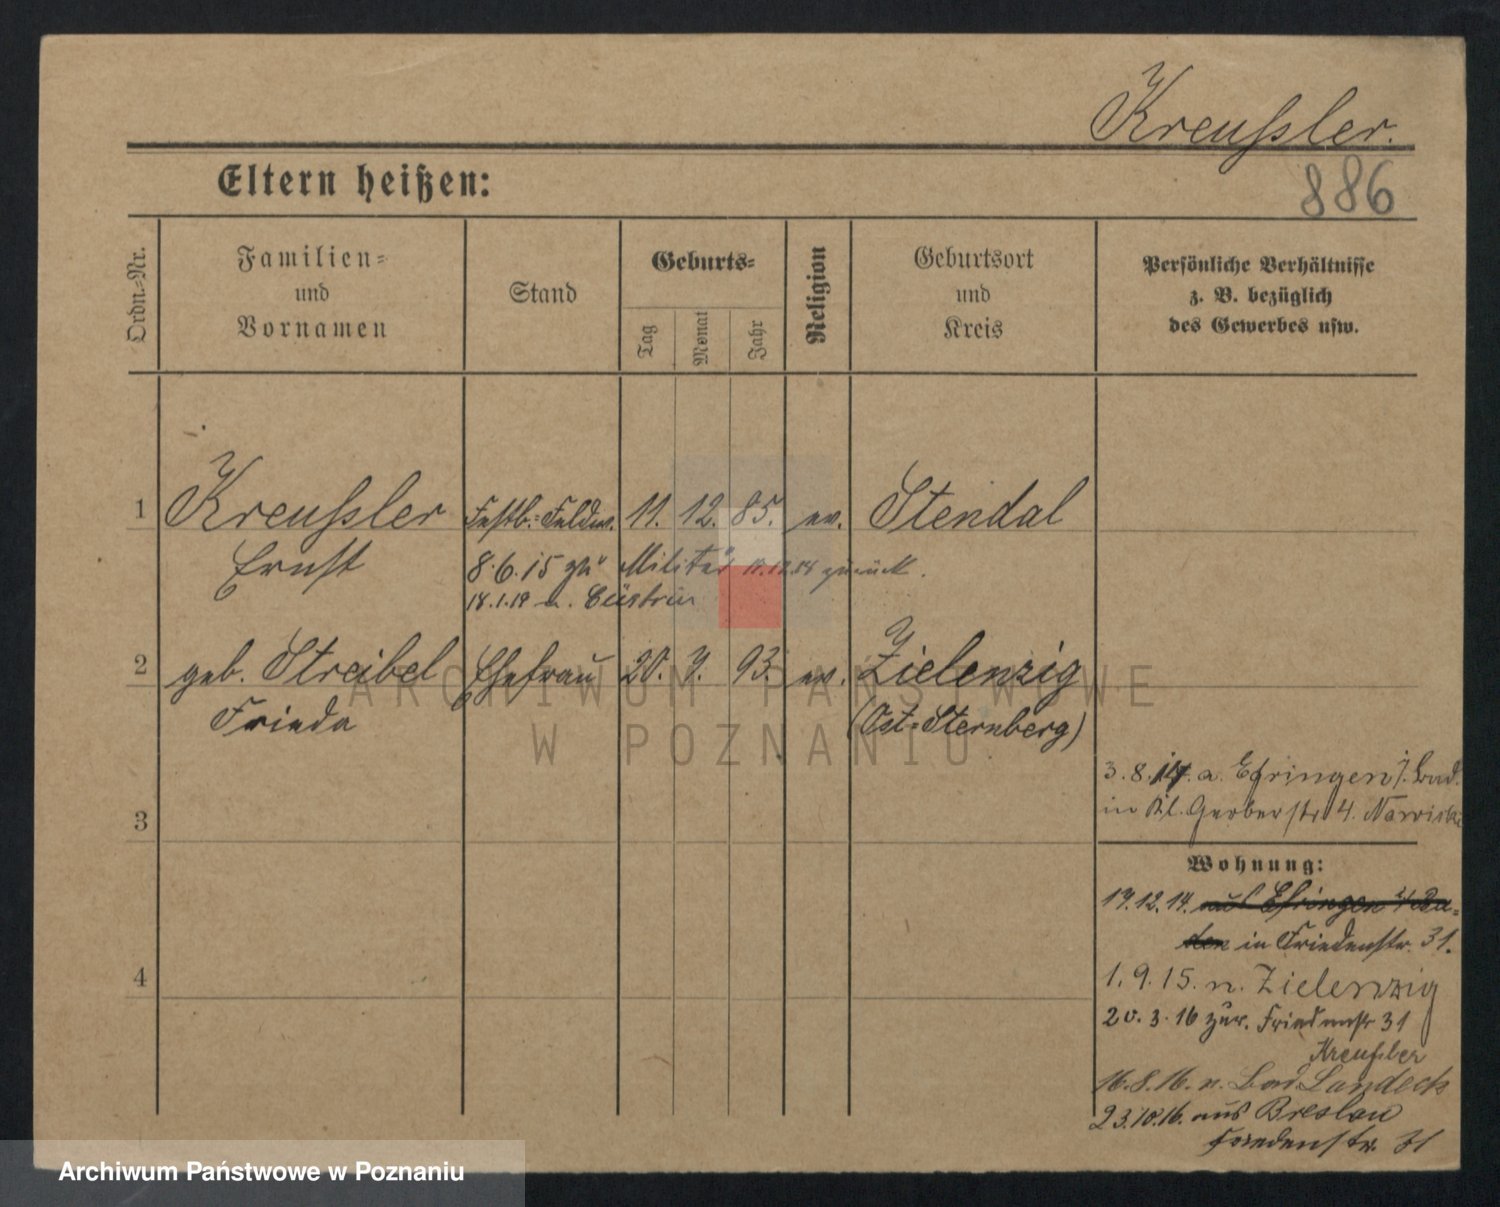 Kreußler.
Eltern heißen:
886
Ordn.-Nr.
Familien-
und
Vornamen
Stand
Geburts-
Tag
Monat
Jahr
Religion
Geburtsort
und
Kreis
Persönliche Verhältnisse
z. B. bezüglich
des Gewerbes usw.
1 Kreußler Festb.-Feldw. 11. 12. 85. ev. Stendal
Ernst 8.6.15 zu Militär 11.12.14 zurück.
18.1.19 n. Cüstrin
2 geb. Streibel Ehefrau 20. 7. 93. ev. Zielenzig
Frieda (Ost-Sternberg)
3.8.14. a. Efringen i. Bad.
in Kl. Gerberstr 4.
3
Wohnung:
17.12.14. aus Efringen i/Ba-
den in Friedenstr. 31.
4
1.9.15. n. Zielenzig
20.3.16 zur. Friedenstr 31
Kreußler
16.8.16. n. Bad Landeck
23.10.16. aus Breslau
Friedenstr. 31
ARCHIWUM PAŃSTWOWE
W POZNANIU
Archiwum Państwowe w Poznaniu